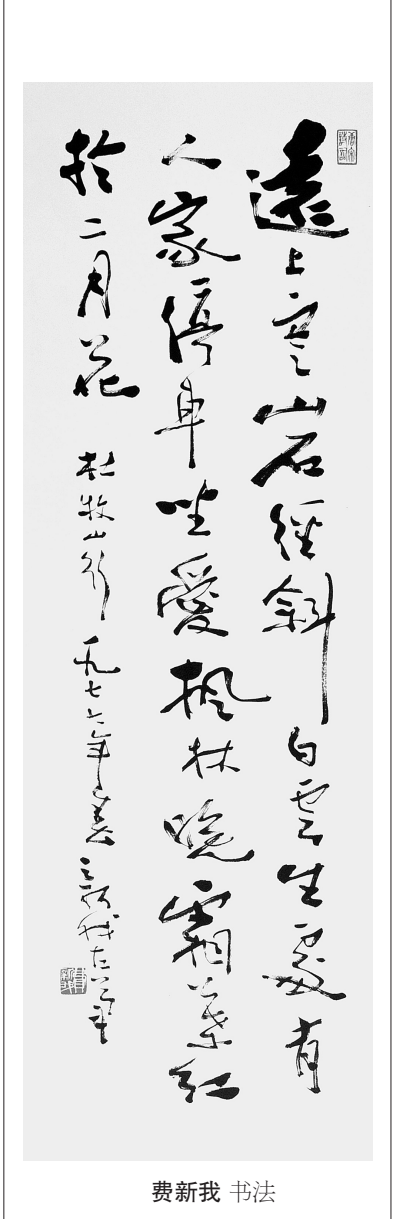 遠上寒山石徑斜白雲生處有
人家停車坐愛楓林晚霜葉紅
於二月花 杜牧山行 一九七六年 新我左筆
费新我 书法